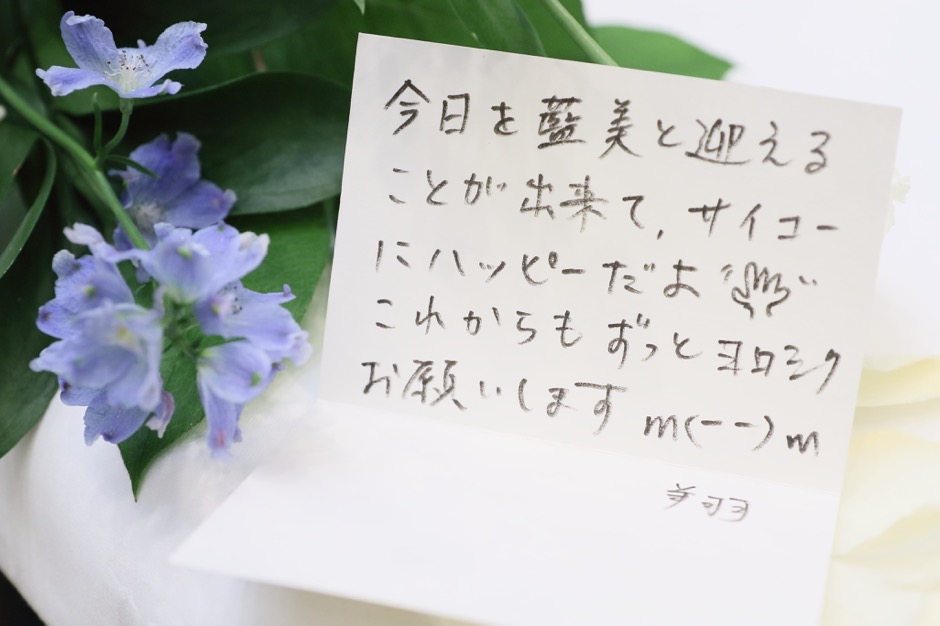 今日を藍美と迎える
ことが出来て,サイコー
にハッピーだよ
これからもずっとヨロシク
お願いします m(--)m
美羽